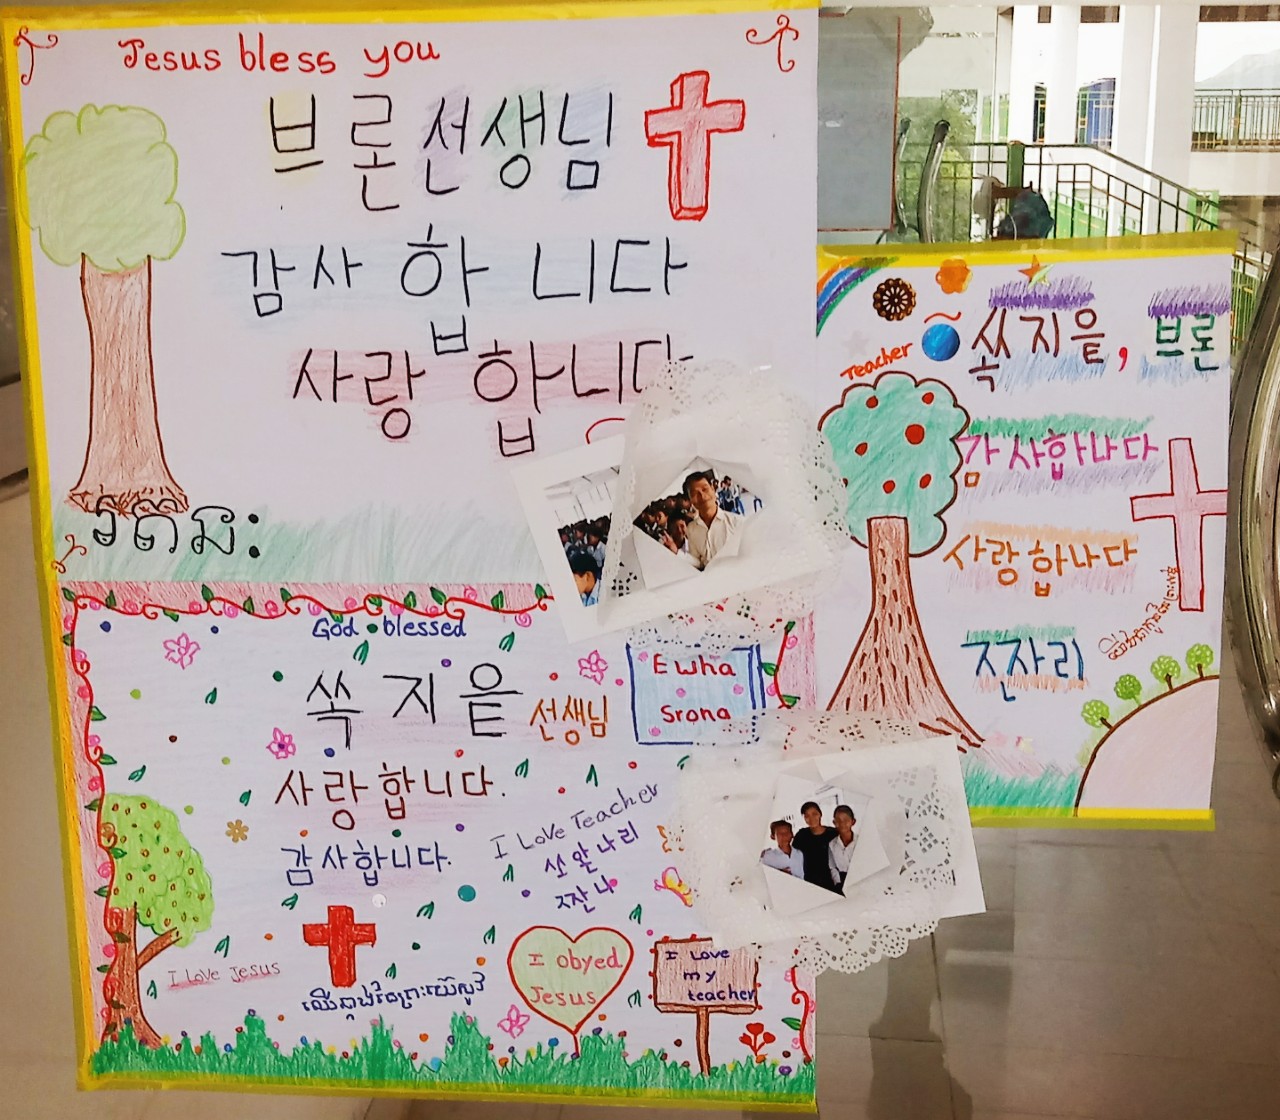 Jesus bless you
브론선생님
감사합니다
사랑합니다
រតនៈ
God blessed
쏙지읕 선생님
사랑합니다.
감사합니다.
Ewha
Srona
I Love Teacher
쏘알나리
ㅈ잔나
I Love Jesus
ឈើឆ្កាងនៃព្រះយេស៊ូវ
I obyed
Jesus
I Love
my
teacher
Teacher
쏙지읕, 브론
감사합나다
사랑합나다
ㅈ잔리